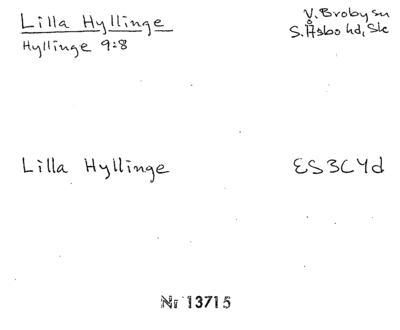 Lilla Hyllinge
V. Broby sn
Hyllinge 9:8
S. Åsbo hd, Sk
Lilla Hyllinge
ES3C4d
Nr 13715